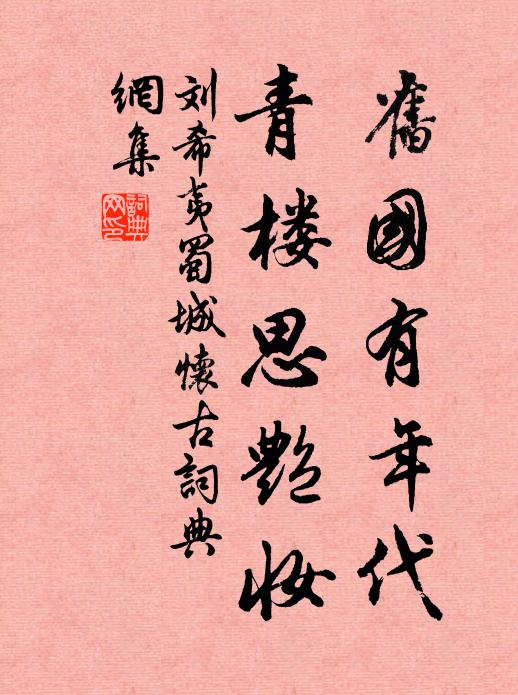 舊國有年代
青楼思艷妝
刘希夷蜀城懷古詞典
網集
詞典網印